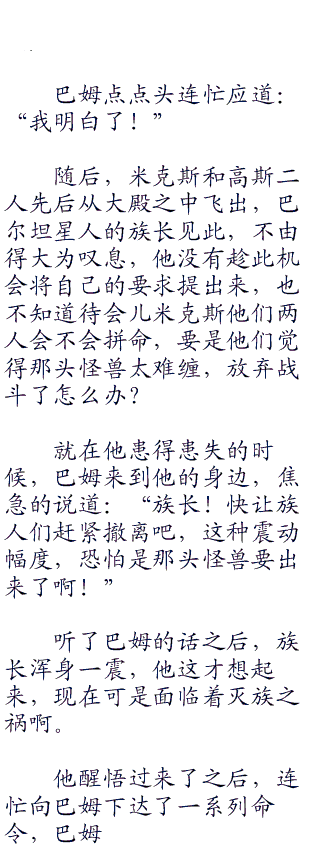 巴姆点点头连忙应道：
“我明白了！”
随后，米克斯和高斯二
人先后从大殿之中飞出，巴
尔坦星人的族长见此，不由
得大为叹息，他没有趁此机
会将自己的要求提出来，也
不知道待会儿米克斯他们两
人会不会拼命，要是他们觉
得那头怪兽太难缠，放弃战
斗了怎么办？
就在他患得患失的时
候，巴姆来到他的身边，焦
急的说道：“族长！快让族
人们赶紧撤离吧，这种震动
幅度，恐怕是那头怪兽要出
来了啊！”
听了巴姆的话之后，族
长浑身一震，他这才想起
来，现在可是面临着灭族之
祸啊。
他醒悟过来了之后，连
忙向巴姆下达了一系列命
令，巴姆